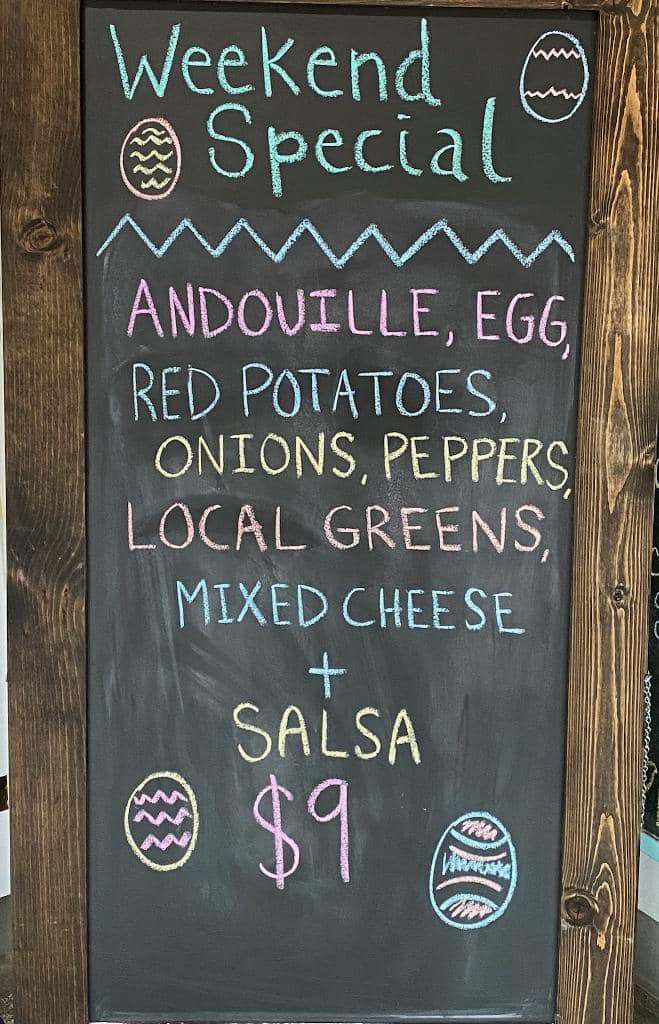 Weekend
Special
ANDOUILLE, EGG,
RED POTATOES,
ONIONS, PEPPERS,
LOCAL GREENS,
MIXED CHEESE
+
SALSA
$9